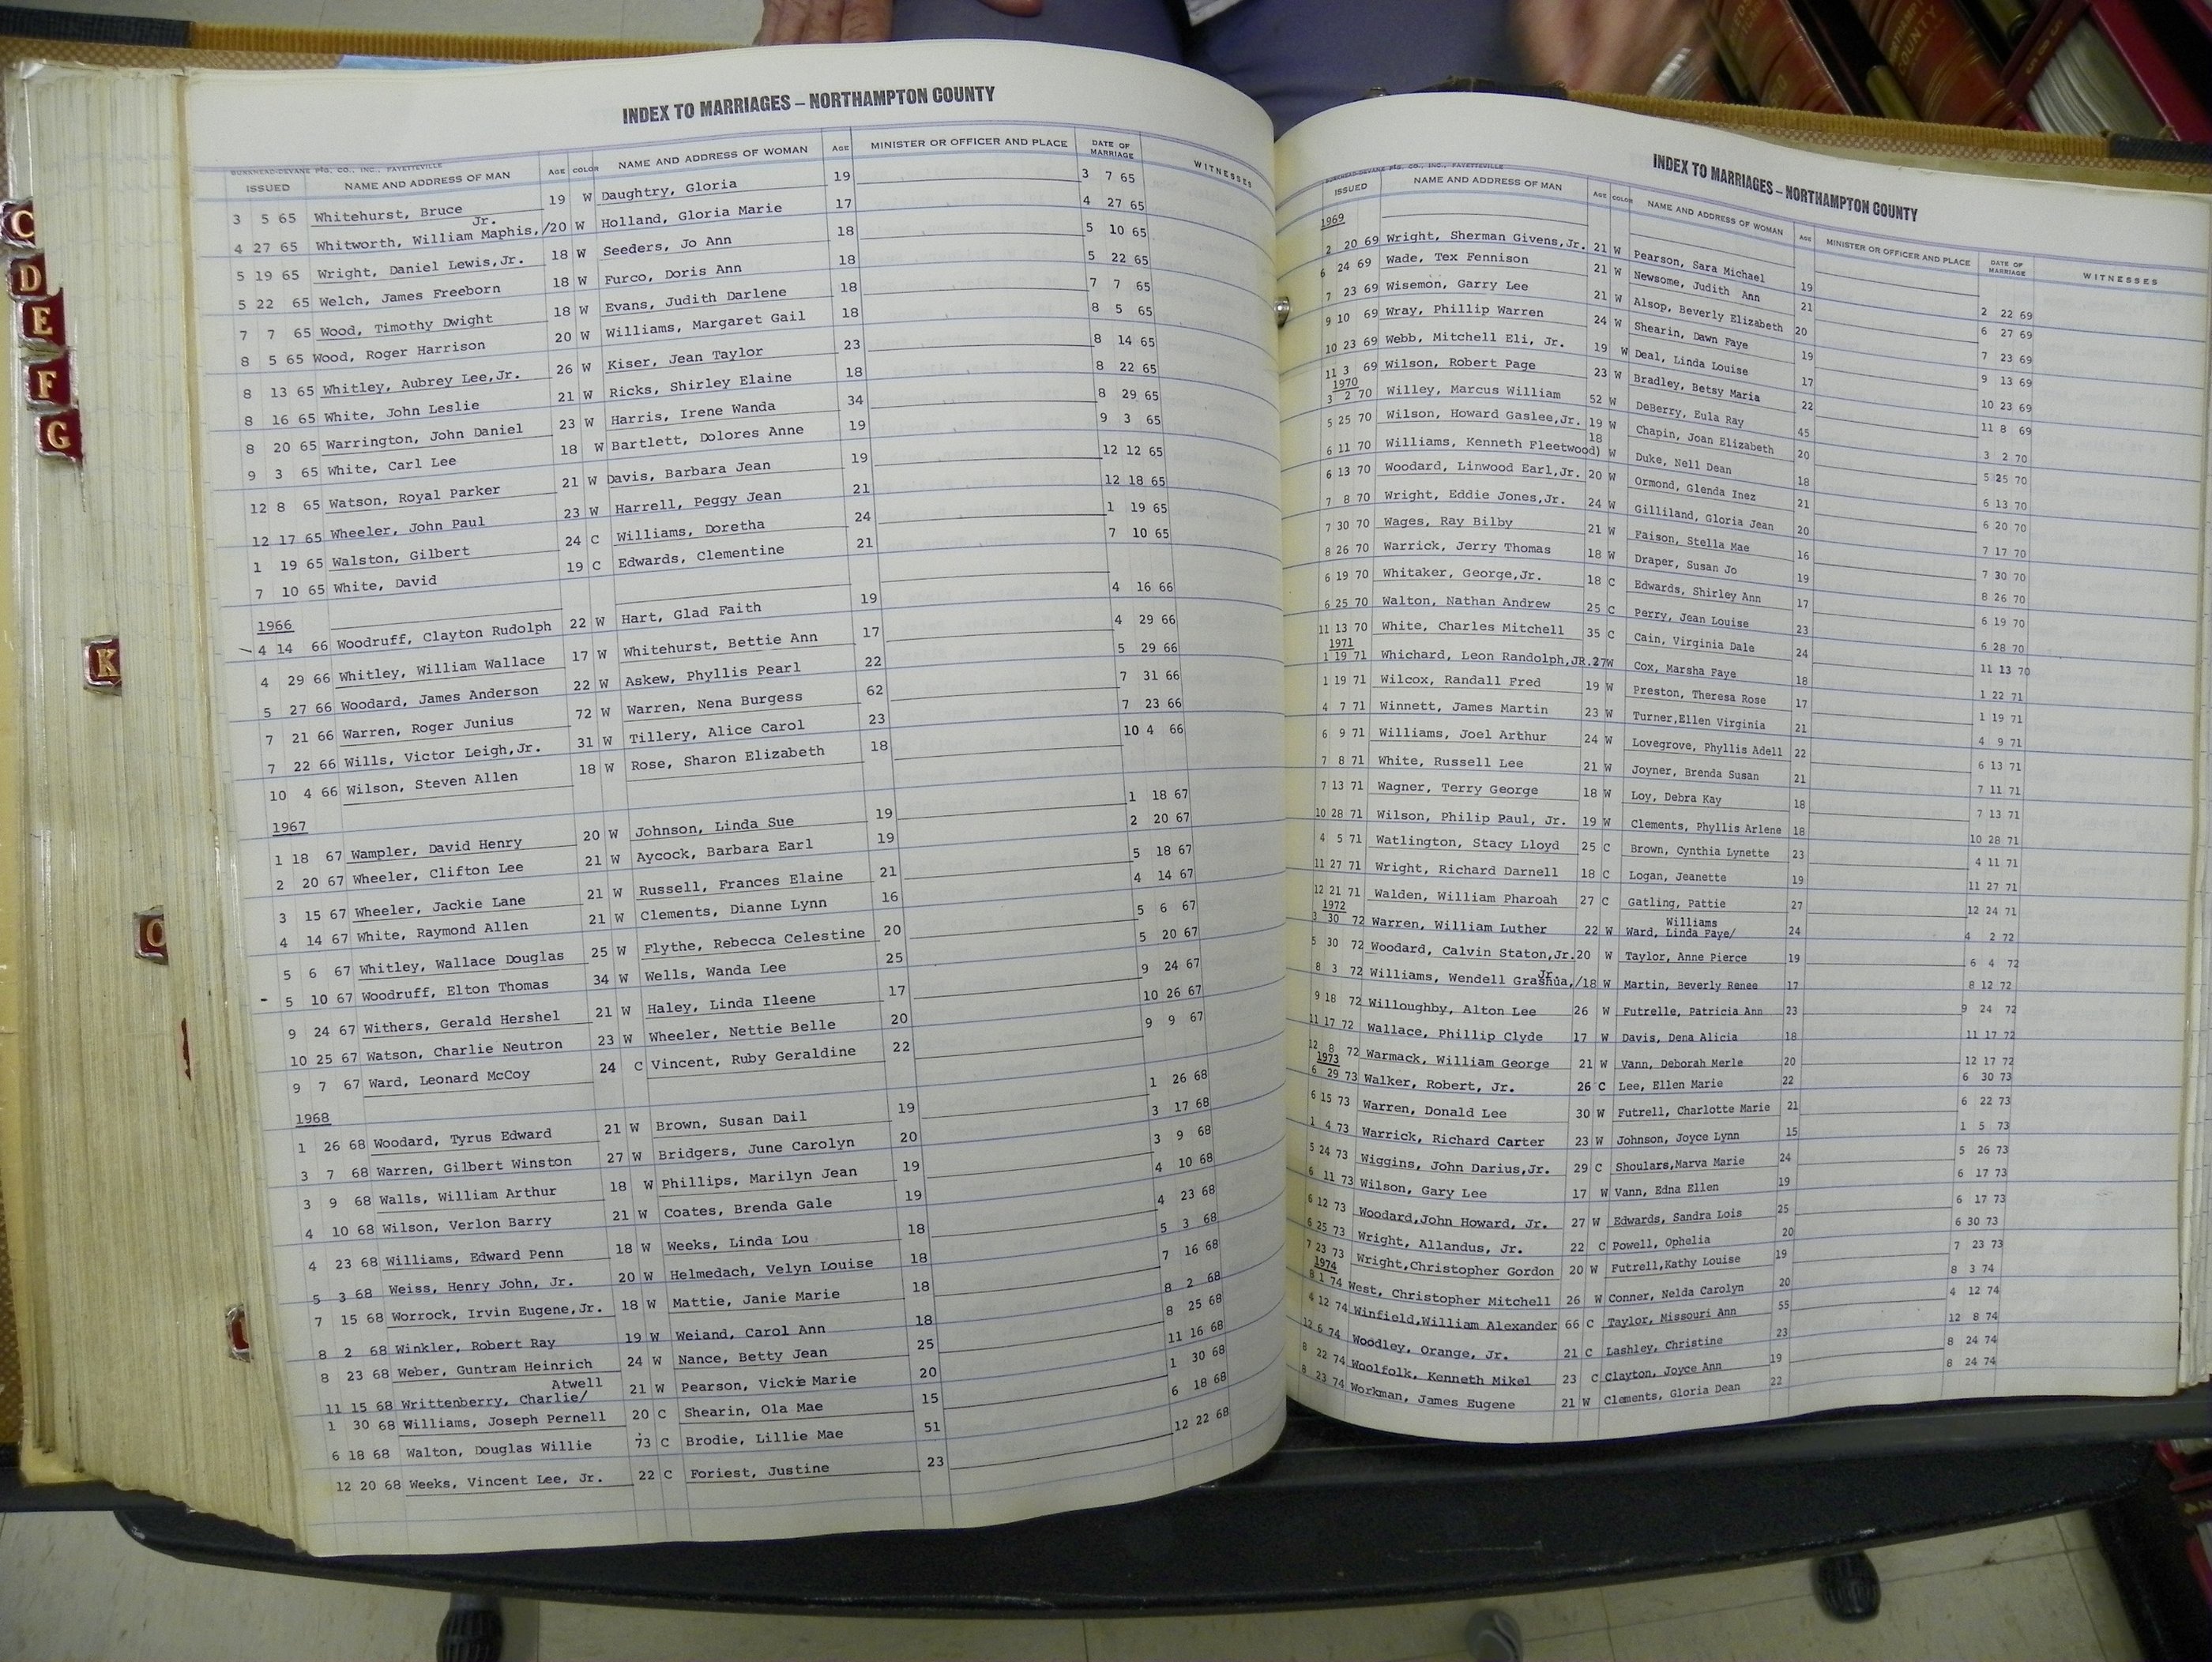 C
D
E
F
G
K
INDEX TO MARRIAGES – NORTHAMPTON COUNTY
BURKHEAD-DEVANE PTG. CO., INC., FAYETTEVILLE
ISSUED NAME AND ADDRESS OF MAN AGE COLOR NAME AND ADDRESS OF WOMAN AGE MINISTER OR OFFICER AND PLACE DATE OF MARRIAGE WITNESSES
3 5 65 Whitehurst, Bruce 19 W Daughtry, Gloria 19 3 7 65
4 27 65 Whitworth, William Maphis,/Jr. 20 W Holland, Gloria Marie 17 4 27 65
5 19 65 Wright, Daniel Lewis,Jr. 18 W Seeders, Jo Ann 18 5 10 65
5 22 65 Welch, James Freeborn 18 W Furco, Doris Ann 18 5 22 65
7 7 65 Wood, Timothy Dwight 18 W Evans, Judith Darlene 18 7 7 65
8 5 65 Wood, Roger Harrison 20 W Williams, Margaret Gail 18 8 5 65
8 13 65 Whitley, Aubrey Lee,Jr. 26 W Kiser, Jean Taylor 23 8 14 65
8 16 65 White, John Leslie 21 W Ricks, Shirley Elaine 18 8 22 65
8 20 65 Warrington, John Daniel 23 W Harris, Irene Wanda 34 8 29 65
9 3 65 White, Carl Lee 18 W Bartlett, Dolores Anne 19 9 3 65
12 8 65 Watson, Royal Parker 21 W Davis, Barbara Jean 19 12 12 65
12 17 65 Wheeler, John Paul 23 W Harrell, Peggy Jean 21 12 18 65
1 19 65 Walston, Gilbert 24 C Williams, Doretha 24 1 19 65
7 10 65 White, David 19 C Edwards, Clementine 21 7 10 65
1966
4 14 66 Woodruff, Clayton Rudolph 22 W Hart, Glad Faith 19 4 16 66
4 29 66 Whitley, William Wallace 17 W Whitehurst, Bettie Ann 17 4 29 66
5 27 66 Woodard, James Anderson 22 W Askew, Phyllis Pearl 22 5 29 66
7 21 66 Warren, Roger Junius 72 W Warren, Nena Burgess 62 7 31 66
7 22 66 Wills, Victor Leigh,Jr. 31 W Tillery, Alice Carol 23 7 23 66
10 4 66 Wilson, Steven Allen 18 W Rose, Sharon Elizabeth 18 10 4 66
1967
1 18 67 Wampler, David Henry 20 W Johnson, Linda Sue 19 1 18 67
2 20 67 Wheeler, Clifton Lee 21 W Aycock, Barbara Earl 19 2 20 67
3 15 67 Wheeler, Jackie Lane 21 W Russell, Frances Elaine 21 5 18 67
4 14 67 White, Raymond Allen 21 W Clements, Dianne Lynn 16 4 14 67
5 6 67 Whitley, Wallace Douglas 25 W Flythe, Rebecca Celestine 20 5 6 67
- 5 10 67 Woodruff, Elton Thomas 34 W Wells, Wanda Lee 25 5 20 67
9 24 67 Withers, Gerald Hershel 21 W Haley, Linda Ileene 17 9 24 67
10 25 67 Watson, Charlie Neutron 23 W Wheeler, Nettie Belle 20 10 26 67
9 7 67 Ward, Leonard McCoy 24 C Vincent, Ruby Geraldine 22 9 9 67
1968
1 26 68 Woodard, Tyrus Edward 21 W Brown, Susan Dail 19 1 26 68
3 7 68 Warren, Gilbert Winston 27 W Bridgers, June Carolyn 20 3 17 68
3 9 68 Walls, William Arthur 18 W Phillips, Marilyn Jean 19 3 9 68
4 10 68 Wilson, Verlon Barry 21 W Coates, Brenda Gale 19 4 10 68
4 23 68 Williams, Edward Penn 18 W Weeks, Linda Lou 18 4 23 68
5 3 68 Weiss, Henry John, Jr. 20 W Helmedach, Velyn Louise 18 5 3 68
7 15 68 Worrock, Irvin Eugene,Jr. 18 W Mattie, Janie Marie 18 7 16 68
8 2 68 Winkler, Robert Ray 19 W Weiand, Carol Ann 18 8 2 68
8 23 68 Weber, Guntram Heinrich 24 W Nance, Betty Jean 25 8 25 68
11 15 68 Writtenberry, Charlie/Atwell 21 W Pearson, Vickie Marie 20 11 16 68
1 30 68 Williams, Joseph Pernell 20 C Shearin, Ola Mae 15 1 30 68
6 18 68 Walton, Douglas Willie 73 C Brodie, Lillie Mae 51 6 18 68
12 20 68 Weeks, Vincent Lee, Jr. 22 C Foriest, Justine 23 12 22 68
INDEX TO MARRIAGES – NORTHAMPTON COUNTY
BURKHEAD-DEVANE PTG. CO., INC., FAYETTEVILLE
ISSUED NAME AND ADDRESS OF MAN AGE COLOR NAME AND ADDRESS OF WOMAN AGE MINISTER OR OFFICER AND PLACE DATE OF MARRIAGE WITNESSES
1969
2 20 69 Wright, Sherman Givens,Jr. 21 W Pearson, Sara Michael 19 2 22 69
6 24 69 Wade, Tex Fennison 21 W Newsome, Judith Ann 21 6 27 69
7 23 69 Wisemon, Garry Lee 21 W Alsop, Beverly Elizabeth 20 7 23 69
9 10 69 Wray, Phillip Warren 24 W Shearin, Dawn Faye 19 9 13 69
10 23 69 Webb, Mitchell Eli, Jr. 19 W Deal, Linda Louise 17 10 23 69
11 3 69 Wilson, Robert Page 23 W Bradley, Betsy Maria 22 11 8 69
1970
3 2 70 Willey, Marcus William 52 W DeBerry, Eula Ray 45 3 2 70
5 25 70 Wilson, Howard Gaslee,Jr. 19 W Chapin, Joan Elizabeth 20 5 25 70
6 11 70 Williams, Kenneth Fleetwood) 18 W Duke, Nell Dean 18 6 13 70
6 13 70 Woodard, Linwood Earl,Jr. 20 W Ormond, Glenda Inez 21 6 20 70
7 8 70 Wright, Eddie Jones,Jr. 24 W Gilliland, Gloria Jean 20 7 17 70
7 30 70 Wages, Ray Bilby 21 W Faison, Stella Mae 16 7 30 70
8 26 70 Warrick, Jerry Thomas 18 W Draper, Susan Jo 19 8 26 70
6 19 70 Whitaker, George,Jr. 18 C Edwards, Shirley Ann 17 6 19 70
6 25 70 Walton, Nathan Andrew 25 C Perry, Jean Louise 23 6 28 70
11 13 70 White, Charles Mitchell 35 C Cain, Virginia Dale 24 11 13 70
1971
1 19 71 Whichard, Leon Randolph,JR.27W Cox, Marsha Faye 18 1 22 71
1 19 71 Wilcox, Randall Fred 19 W Preston, Theresa Rose 17 1 19 71
4 7 71 Winnett, James Martin 23 W Turner,Ellen Virginia 21 4 9 71
6 9 71 Williams, Joel Arthur 24 W Lovegrove, Phyllis Adell 22 6 13 71
7 8 71 White, Russell Lee 21 W Joyner, Brenda Susan 21 7 11 71
7 13 71 Wagner, Terry George 18 W Loy, Debra Kay 18 7 13 71
10 28 71 Wilson, Philip Paul, Jr. 19 W Clements, Phyllis Arlene 18 10 28 71
4 5 71 Watlington, Stacy Lloyd 25 C Brown, Cynthia Lynette 23 4 11 71
11 27 71 Wright, Richard Darnell 18 C Logan, Jeanette 19 11 27 71
12 21 71 Walden, William Pharoah 27 C Gatling, Pattie 27 12 24 71
1972
3 30 72 Warren, William Luther 22 W Ward, Linda Faye/Williams 24 4 2 72
5 30 72 Woodard, Calvin Staton,Jr.20 W Taylor, Anne Pierce 19 6 4 72
8 3 72 Williams, Wendell Grashua,/Jr. 18 W Martin, Beverly Renee 17 8 12 72
9 18 72 Willoughby, Alton Lee 26 W Futrelle, Patricia Ann 23 9 24 72
11 17 72 Wallace, Phillip Clyde 17 W Davis, Dena Alicia 18 11 17 72
12 8 72 Warmack, William George 21 W Vann, Deborah Merle 20 12 17 72
1973
6 29 73 Walker, Robert, Jr. 26 C Lee, Ellen Marie 22 6 30 73
6 15 73 Warren, Donald Lee 30 W Futrell, Charlotte Marie 21 6 22 73
1 4 73 Warrick, Richard Carter 23 W Johnson, Joyce Lynn 15 1 5 73
5 24 73 Wiggins, John Darius,Jr. 29 C Shoulars,Marva Marie 24 5 26 73
6 11 73 Wilson, Gary Lee 17 W Vann, Edna Ellen 19 6 17 73
6 12 73 Woodard,John Howard, Jr. 27 W Edwards, Sandra Lois 25 6 17 73
6 25 73 Wright, Allandus, Jr. 22 C Powell, Ophelia 20 6 30 73
7 23 73 Wright,Christopher Gordon 20 W Futrell,Kathy Louise 19 7 23 73
1974
8 1 74 West, Christopher Mitchell 26 W Conner, Nelda Carolyn 20 8 3 74
4 12 74 Winfield,William Alexander 66 C Taylor, Missouri Ann 55 4 12 74
12 6 74 Woodley, Orange, Jr. 21 C Lashley, Christine 23 12 8 74
8 22 74 Woolfolk, Kenneth Mikel 23 C Clayton, Joyce Ann 19 8 24 74
8 23 74 Workman, James Eugene 21 W Clements, Gloria Dean 22 8 24 74